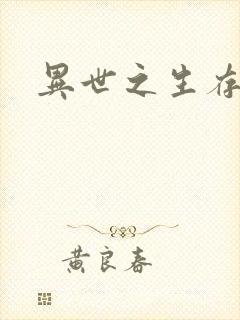 異世之生存
黄良春